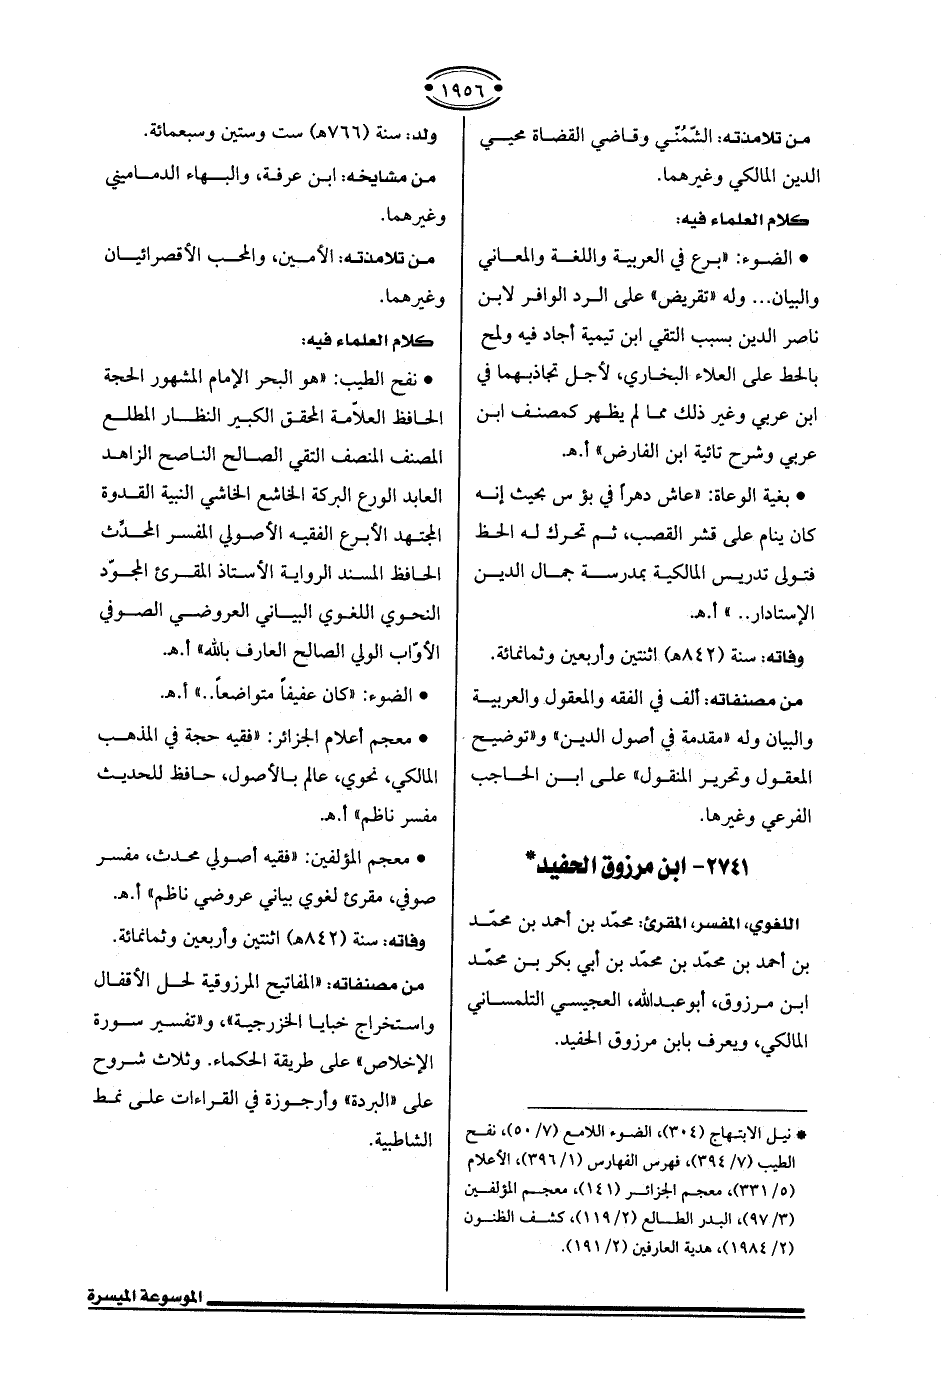 ١٩٥٦
من تلامذته: الشّمُنّي وقاضي القضاة محيي
الدين المالكي وغيرهما.
كلام العلماء فيه:
• الضوء: «برع في العربية واللغة والمعاني
والبيان... وله «تقريض» على الرد الوافر لابن
ناصر الدين بسبب التقي ابن تيمية أجاد فيه ولمح
بالحط على العلاء البخاري، لأجل تجاذبهما في
ابن عربي وغير ذلك مما لم يظهر كمصنف ابن
عربي وشرح تائية ابن الفارض» أ.هـ.
• بغية الوعاة: «عاش دهراً في بؤس بحيث إنه
كان ينام على قشر القصب، ثم تحرك له الحظ
فتولى تدريس المالكية بمدرسة جمال الدين
الإستادار.. » أ.هـ.
وفاته: سنة (٨٤٢هـ) اثنتين وأربعين وثمانمائة.
من مصنفاته: ألف في الفقه والمعقول والعربية
والبيان وله «مقدمة في أصول الدين» و«توضيح
المعقول وتحرير المنقول» على ابن الحاجب
الفرعي وغيرها.
٢٧٤١- ابن مرزوق الحفيد*
اللغوي، المفسر، المقرئ: محمّد بن أحمد بن محمّد
بن أحمد بن محمّد بن محمّد بن أبي بكر بن محمّد
ابن مرزوق، أبو عبدالله، العجيسي التلمساني
المالكي، ويعرف بابن مرزوق الحفيد.
* نيل الابتهاج (٣٠٤)، الضوء اللامع (٥٠/٧)، نفح
الطيب (٣٩٤/٧)، فهرس الفهارس (٣٩٦/١)، الأعلام
(٣٣١/٥)، معجم الجزائر (١٤١)، معجم المؤلفين
(٩٧/٣)، البدر الطالع (١١٩/٢)، كشف الظنون
(١٩٨٤/٢)، هدية العارفين (١٩١/٢).
ولد: سنة (٧٦٦هـ) ست وستين وسبعمائة.
من مشايخه: ابن عرفة، والبهاء الدماميني
وغيرهما.
من تلامذته: الأمين، والمحب الأقصرائيان
وغيرهما.
كلام العلماء فيه:
• نفح الطيب: «هو البحر الإمام المشهور الحجة
الحافظ العلاّمة المحقق الكبير النظار المطلع
المصنف المنصف التقي الصالح الناصح الزاهد
العابد الورع البركة الخاشع الخاشي النبية القدوة
المجتهد الأبرع الفقيه الأصولي المفسر المحدّث
الحافظ المسند الرواية الأستاذ المقرئ المجوّد
النحوي اللغوي البياني العروضي الصوفي
الأوّاب الولي الصالح العارف بالله» أ.هـ.
• الضوء: «كان عفيفاً متواضعاً..» أ.هـ.
• معجم أعلام الجزائر: «فقيه حجة في المذهب
المالكي، نحوي، عالم بالأصول، حافظ للحديث
مفسر ناظم» أ.هـ.
• معجم المؤلفين: «فقيه أصولي محدث، مفسر
صوفي، مقرئ لغوي بياني عروضي ناظم» أ.هـ.
وفاته: سنة (٨٤٢هـ) اثنتين وأربعين وثمانمائة.
من مصنفاته: «المفاتيح المرزوقية لحل الأقفال
واستخراج خبايا الخزرجية»، و«تفسير سورة
الإخلاص» على طريقة الحكماء. وثلاث شروح
على «البردة» وأرجوزة في القراءات على نمط
الشاطبية.
الموسوعة الميسرة